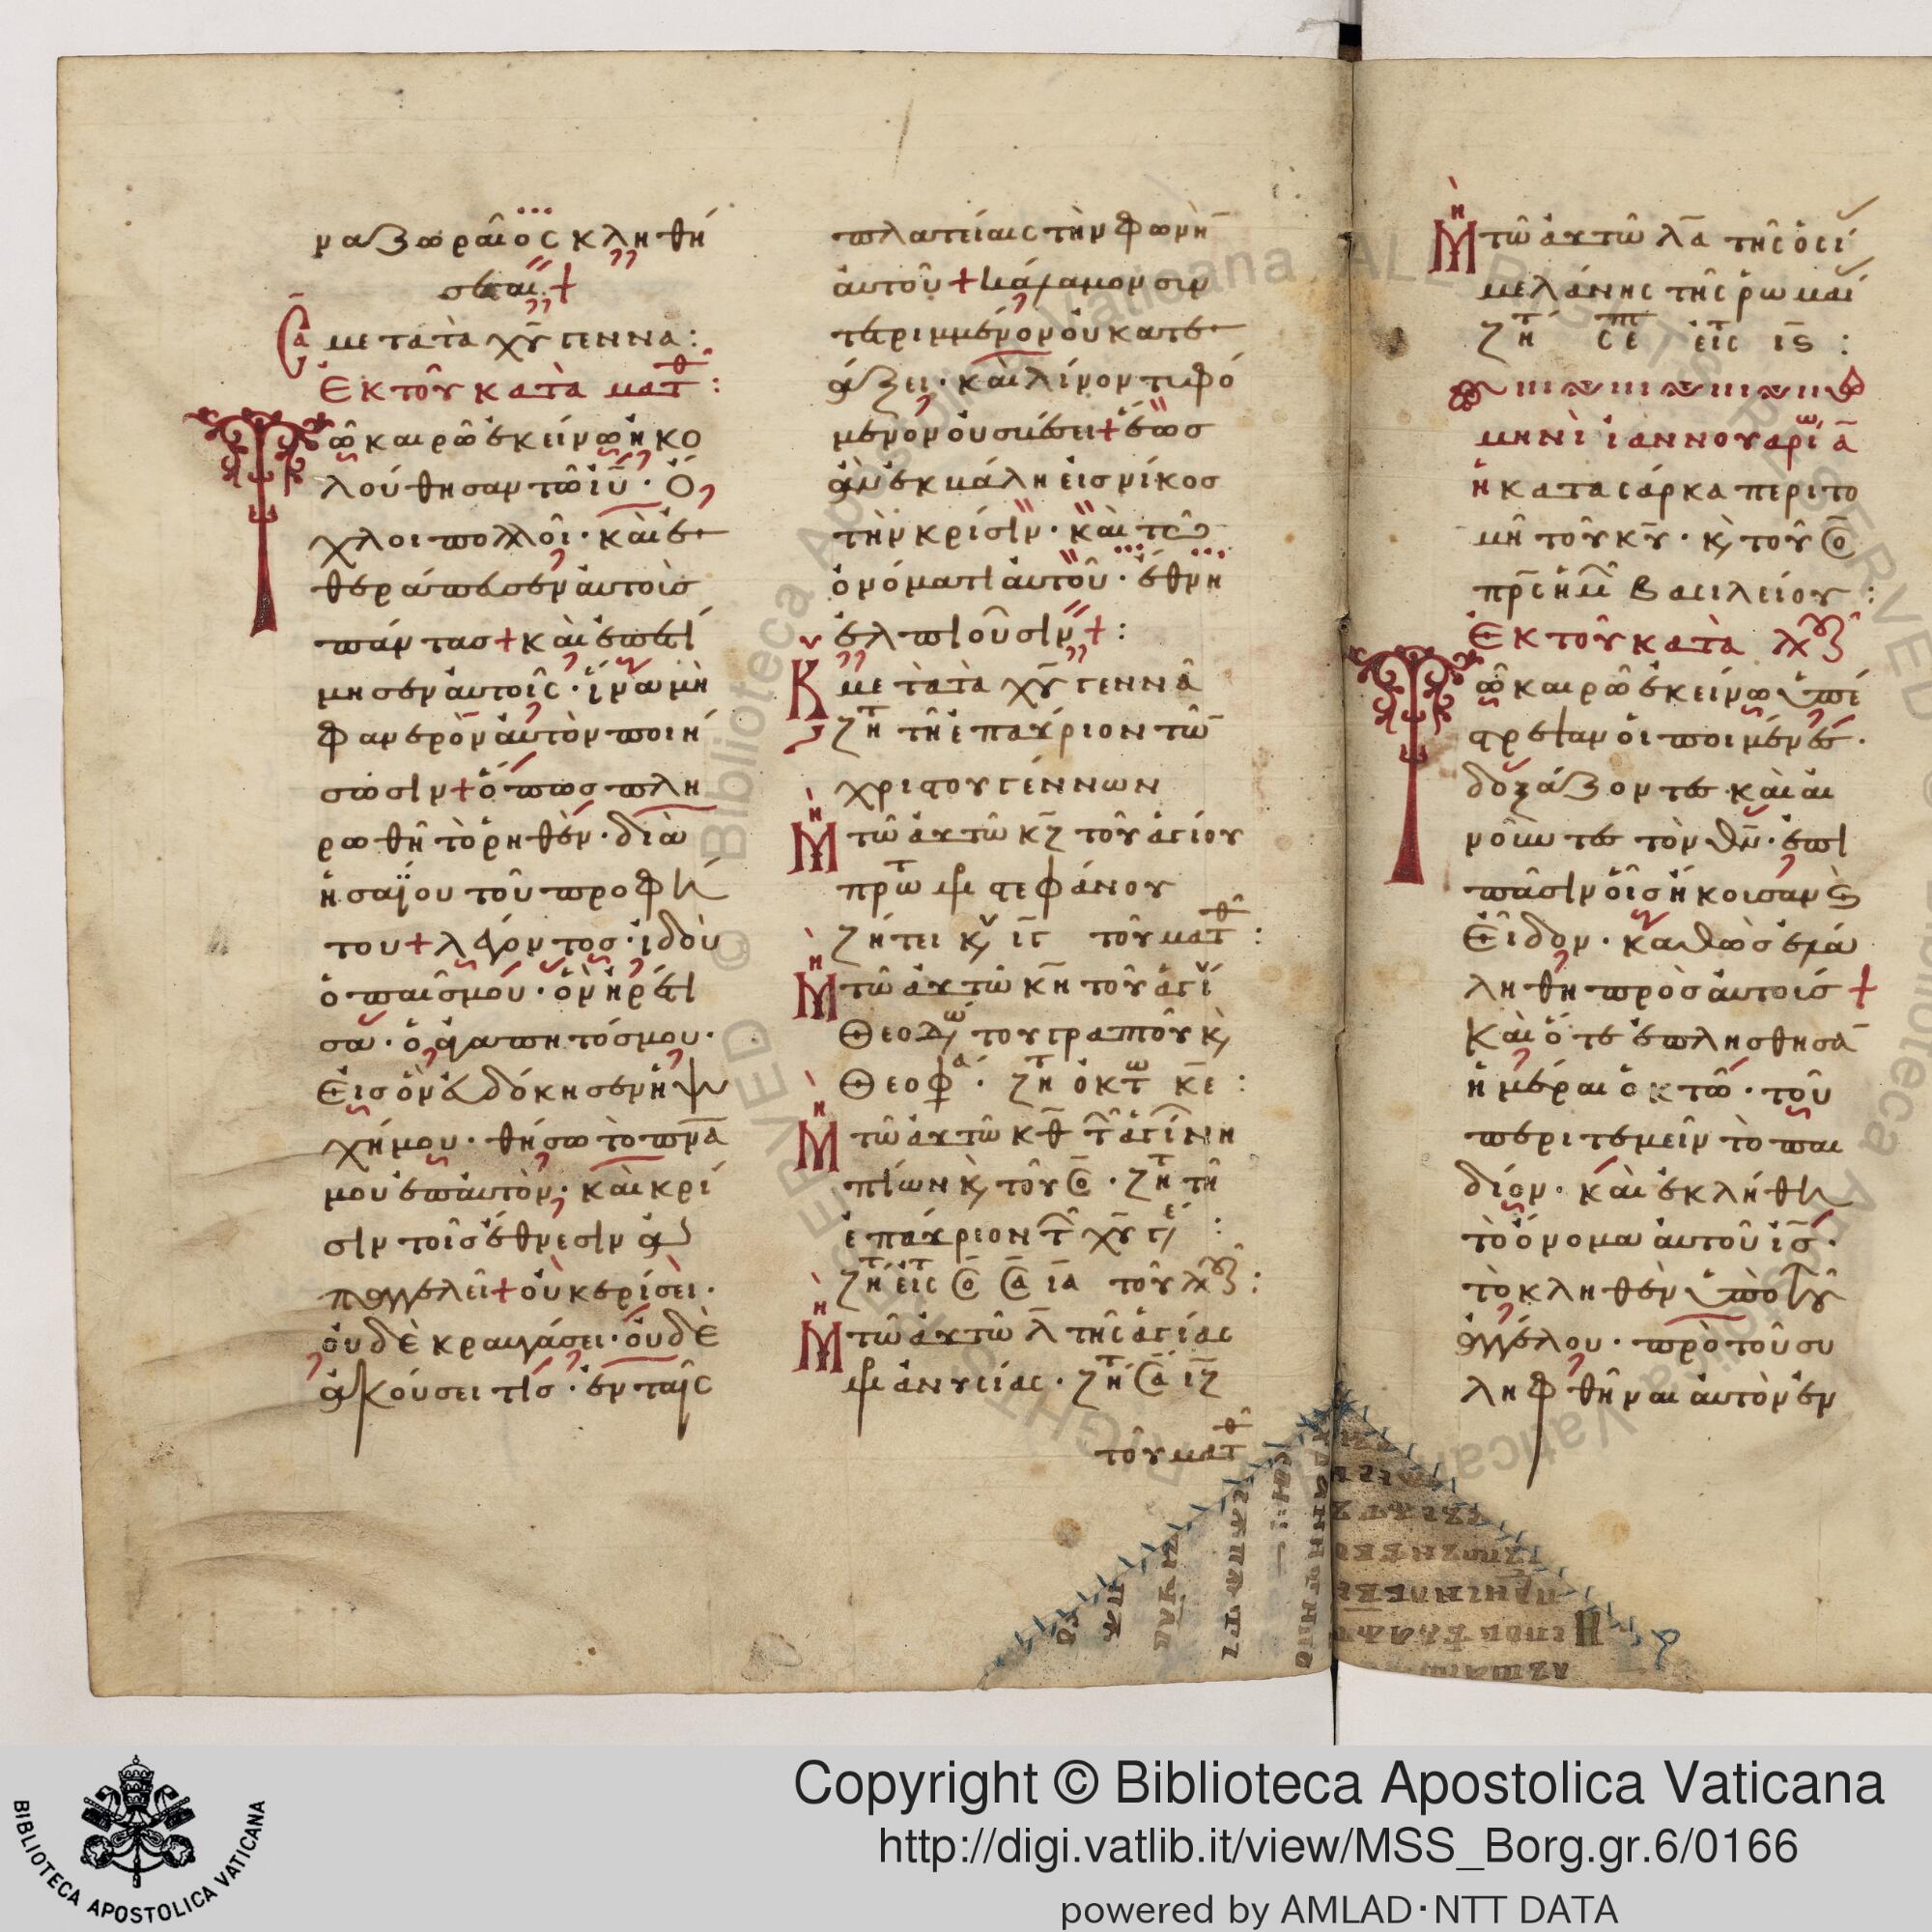 ναζωραῖος κληθή
σεται +
Σα μετὰ τὰ χυ γεννα:
Ἐκ τοῦ κατὰ ματθ:
Τῶ καιρῶ ἐκείνω ἠκο
λούθησαν τῶ ιυ · ὄ
χλοι πολλοὶ · καὶ ἐ
θεράπευσεν αὐτοὺς
πάντας + καὶ ἐπετί
μησεν αὐτοῖς · ἵνα μὴ
φανερὸν αὐτὸν ποιή
σωσιν + ὅπως πλη
ρωθῆ τὸ ῥηθὲν · διὰ
ἠσαΐου τοῦ προφή
του + λέγοντος · ἰδοὺ
ὁ παῖς μου · ὃν ἡρέτι
σα · ὁ ἀγαπητός μου ·
Εἰς ὃν εὐδόκησεν ἡ ψυ
χή μου · θήσω τὸ πνα
μου ἐπ αὐτὸν · καὶ κρί
σιν τοῖς ἔθνεσιν ἀ
παγγελεῖ + οὐκ ἐρίσει ·
οὐδὲ κραυγάσει · οὐδὲ
ἀκούσει τὶς · ἐν ταῖς
πλατείαις τὴν φωνὴ
αὐτοῦ + κάλαμον συν
τετριμμένον οὐ κατε
άξει · καὶ λίνον τυφό
μενον οὐ σβέσει + ἕως
ἂν ἐκβάλη εἰς νίκος
τὴν κρίσιν · καὶ τῶ
ὀνόματι αὐτοῦ · ἔθνη
ἐλπιοῦσιν + :
Κυ μετὰ τὰ χυ γεννα
ζητ τῆ ἐπαύριον τῶ
χριστουγέννων
Μη τῶ αὐτῶ κζ τοῦ ἁγίου
πρωτ μρ στεφάνου
ζήτει κυ ιγ τοῦ ματθ :
Μη τῶ αὐτῶ κη τοῦ ἁγί
Θεοδω του γραπτοῦ κ
Θεοφα · ζητ ὀκτω κε :
Μη τῶ αὐτῶ κθ τ ἁγι νη
πίων κ τοῦ Σο · ζητ τῆ
ἐπαύριον τ χυ γε :
ζητ εἰς Σο Σα ια τοῦ λου :
Μη τῶ αὐτῶ λ τῆς ἁγίας
μρ ἀνυσίας · ζητ Σα ιζ
τοῦ ματθ
Μη τῶ αὐτῶ λα τῆς ὁσί
μελάνης τῆς ῥωμαί
ζητ σεπτ εἰς ις :
μηνὶ ἰαννουαρίω α
ἡ κατα σάρκα περιτο
μὴ τοῦ κυ · κ τοῦ Σο
πρς ἡμ βασιλείου :
Ἐκ τοῦ κατὰ λου
Τῶ καιρῶ ἐκείνω ὑπέ
στρεψαν οἱ ποιμένες ·
δοξάζοντες · καὶ αἰ
νοῦντες τὸν θν · ἐπὶ
πᾶσιν οἷς ἤκουσαν κ
Εἶδον · καθὼς ἐλα
λήθη πρὸς αὐτοὺς +
Καὶ ὅτε ἐπλησθησα
ἡμέραι ὀκτὼ · τοῦ
περιτεμεῖν τὸ παι
δίον · καὶ ἐκλήθη
τὸ ὄνομα αὐτοῦ ις ·
τὸ κληθὲν ὑπὸ τοῦ
ἀγγέλου · πρὸ τοῦ συ
ληφθῆναι αὐτὸν ἐν
Copyright © Biblioteca Apostolica Vaticana
http://digi.vatlib.it/view/MSS_Borg.gr.6/0166
powered by AMLAD·NTT DATA
BIBLIOTECA APOSTOLICA VATICANA